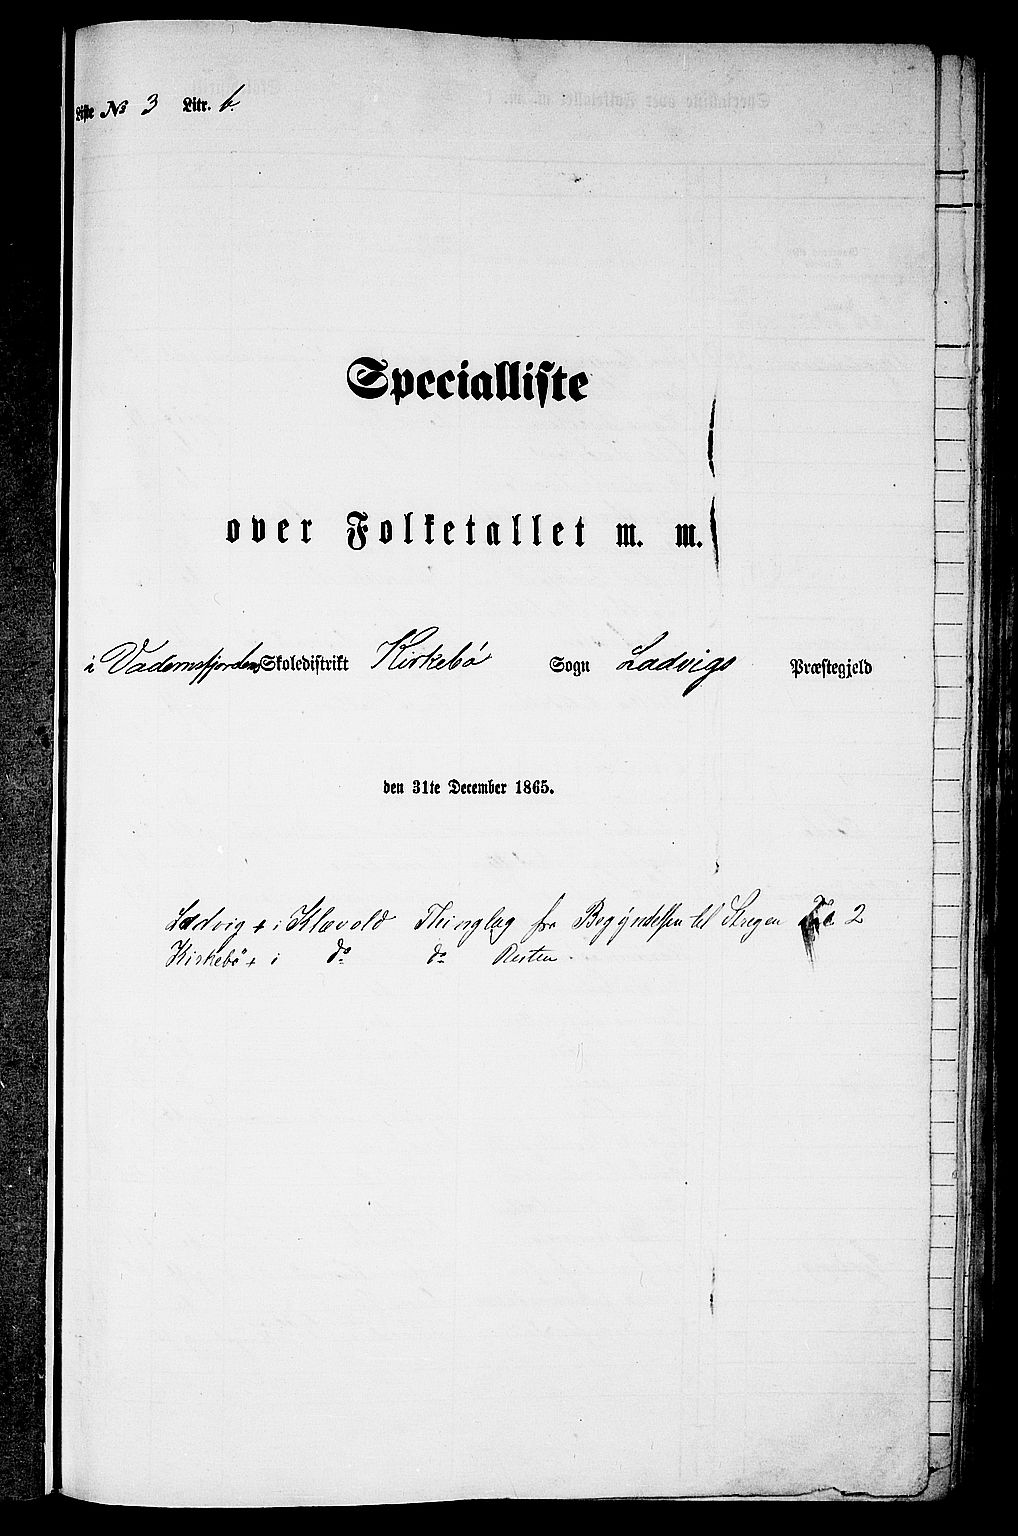 Liste № 3 Litr. b.
Specialliste
over Folketallet m. m.
i Vademsfjordens Skoledistrikt Kirkebö Sogn Ladvigs Præstegjeld
den 31te December 1865.
Ladvig + i Klævold Thinglag fra Begyndelsen til Stregen Fol 2
Kirkebö + i do do Resten.